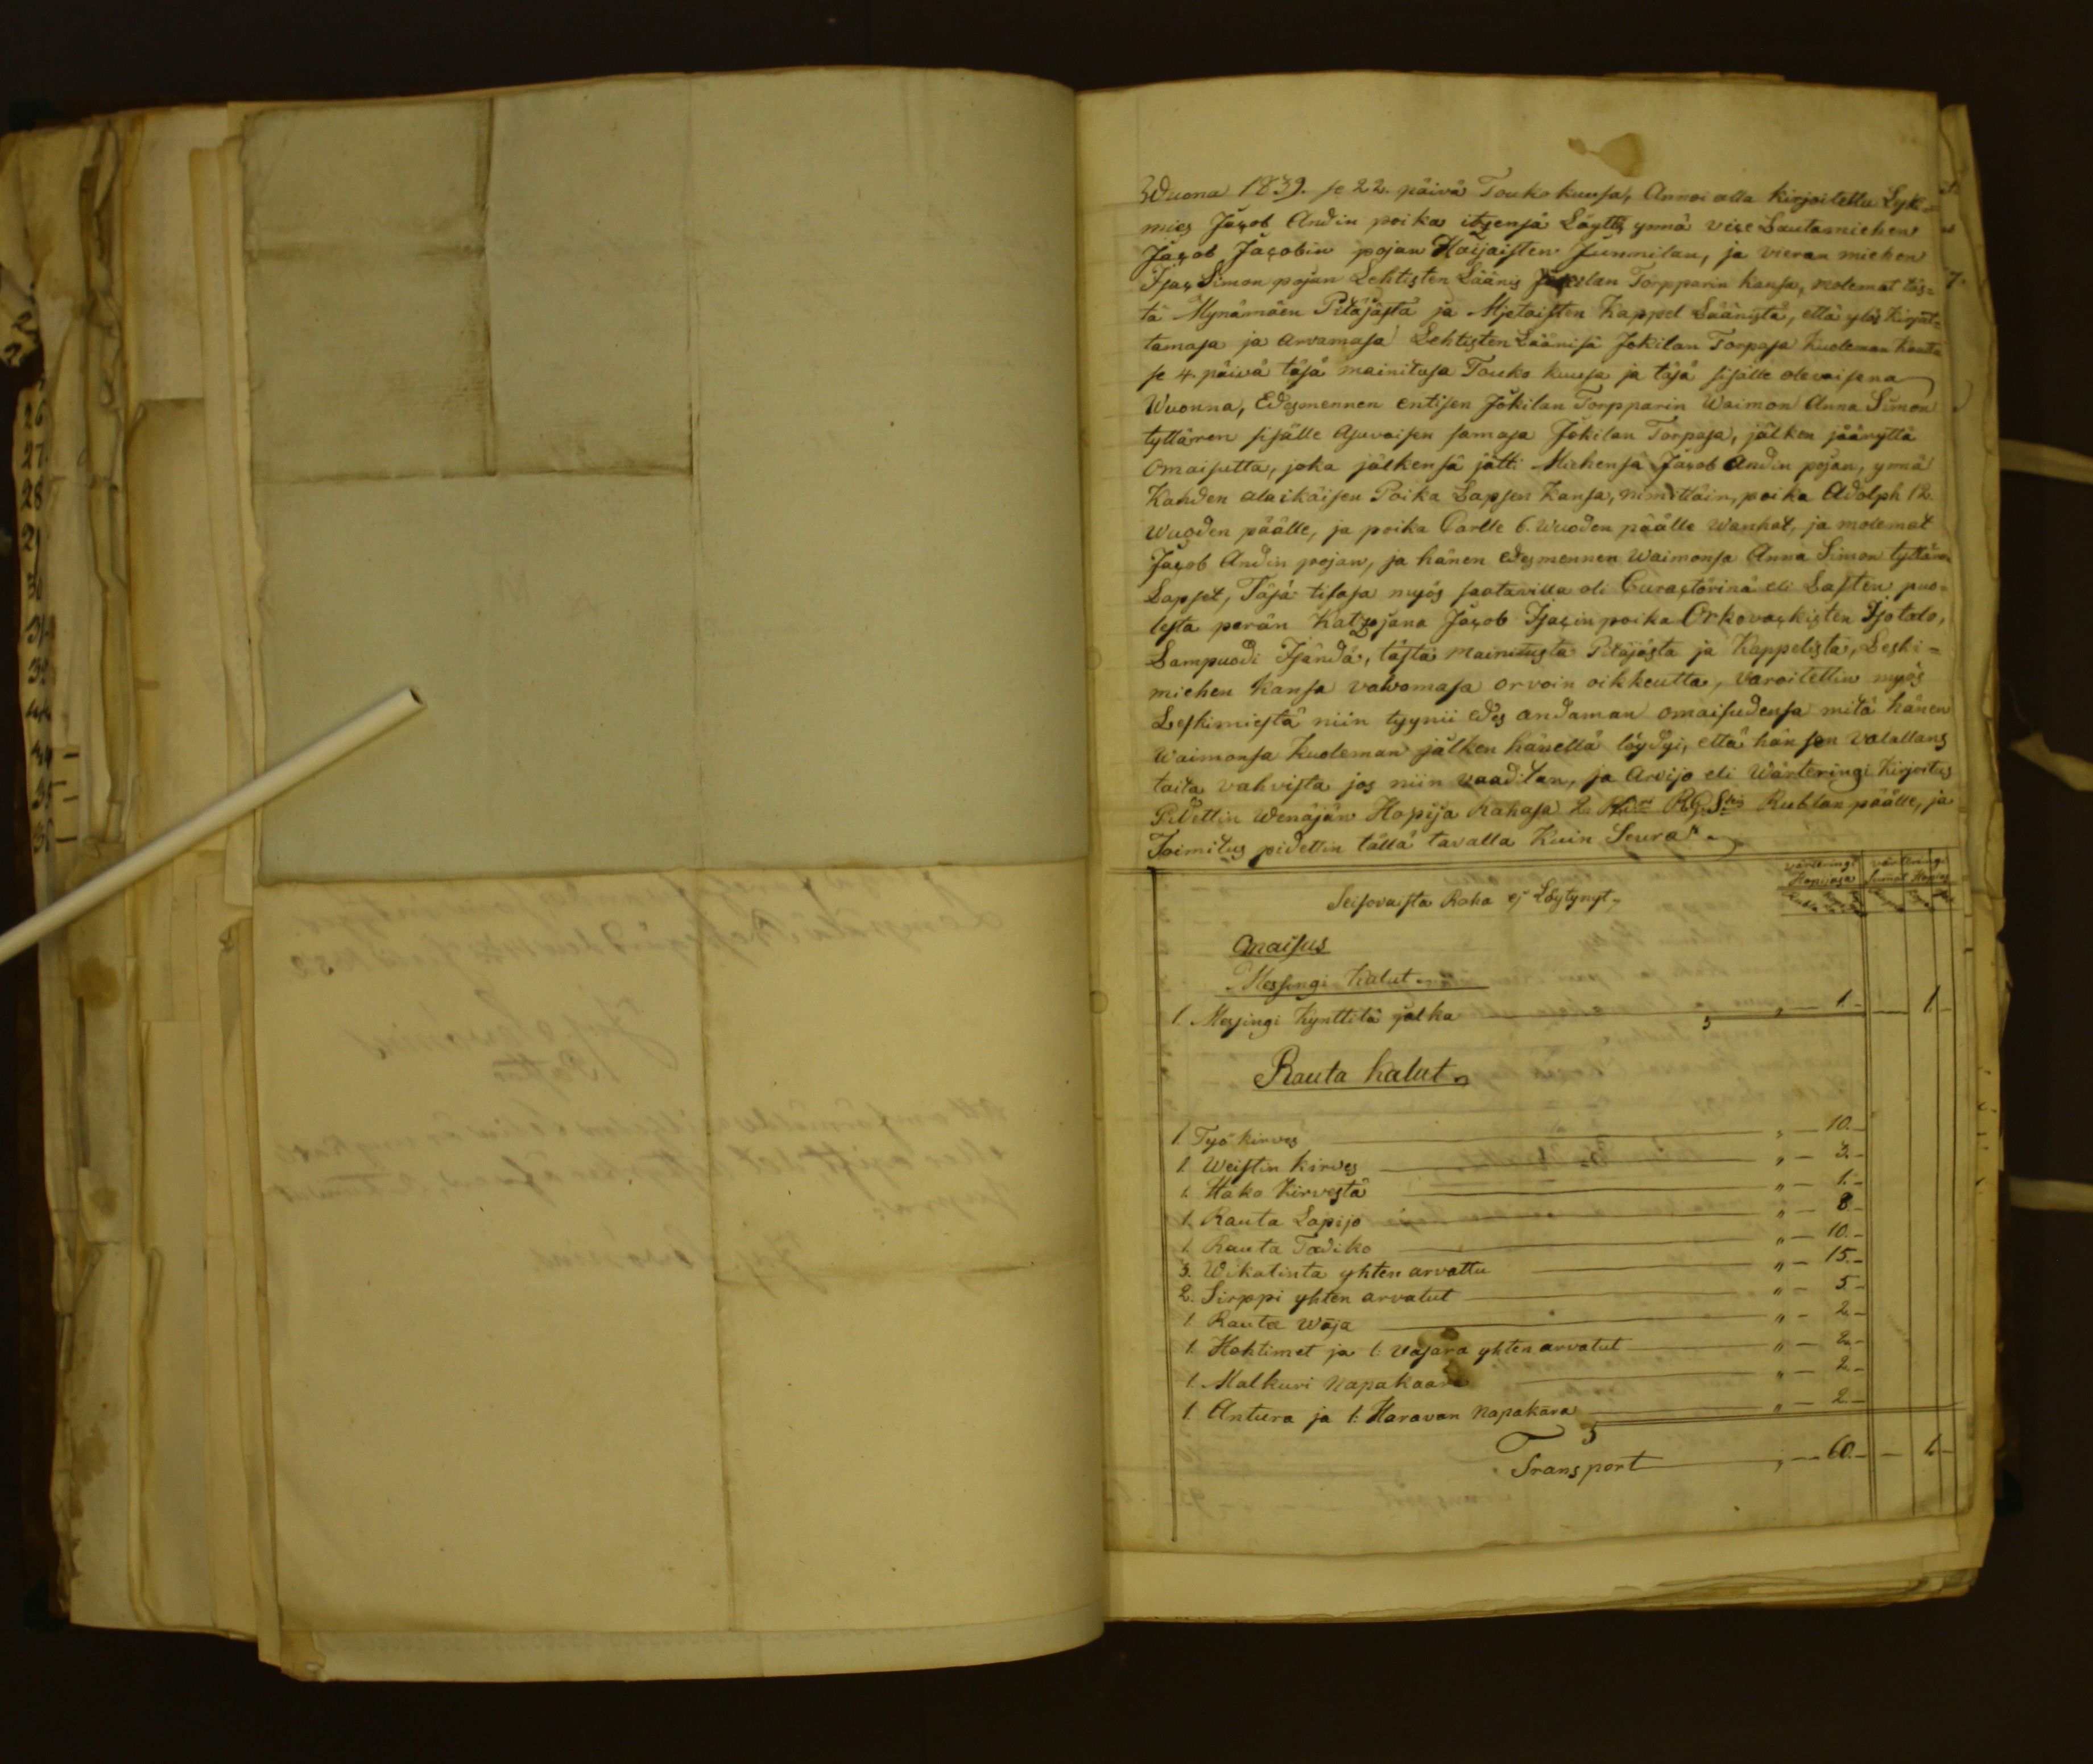 Wuona 1839. se 22. päivä Touko kuusa, Annoi alla kirjoitettu Lyk=
mies Jacob Andin poika itzensä Löyttä ynnä vice Lautamiehen
Jacob Jacobin pojan Haijaisten Junnilan, ja vieran miehen
Isac Simon pojan Lehtisten Läänis Jokilan Torpparin kansa, molemat täs=
tä Mynämäen Pitäjästä ja Mjetoisten Kappel Läänistä, että ylös kirjat=
tamasa ja arvamasa Lehtisten Läänisä Jokilan Torpasa Kuoleman kautta
se 4. päivä täsä mainitusa Touko kuusa ja täsä sisälle olevaisena
Wuonna, Edesmennen entisen Jokilan Torpparin Waimon Anna Simon
tyttären sisälle Asuvaisen samasa Jokilan Torpasa, jälken jäänyttä
Omaisutta, joka jälkensä jätti Miehensä Jacob Andin pojan, ynnä
Kahden alaikäisen Poika Lapsen kansa, nimittäin, poika Adolph 12.
Wuoden päälle, ja poika Carlle 6. Wuoden päälle wanhat, ja molemat
Jacob Andin pojan, ja hänen edesmennen Waimonsa Anna Simon tyttären
Lapset, Täsä tilasa myös saatavilla oli Curactörinä eli Lasten puo=
lesta perän Katzojana Jacob Isacin poika Orkovackisten Isotalo,
Lampuodi Isändä, tästä mainitusta Pitäjästä ja Kappelista, Leski=
miehen kansa valvomasa orvoin oikkeutta, Varoitettin myös
Leskimiestä niin tyynii edes andaman omaisudensa mitä hänen
Waimonsa kuoleman jälken hänellä löydyi, että hän sen valallans
taita vahvista jos niin vaaditan, ja Arvijo eli Wärteringi kirjoitus
Pidettin Wenäjän Hopija Rahasa Rublan päälle, ja
Toimitus pidettin tällä tavalla Kuin Seura.
värteringi
Hopijasa
värteringi
Summat Hopias
Seisovaista Raha ej Löytynyt.
Omaisus
Messingi Kalut
1. Messingi kynttilä jalka „ — 1. — — 1 —
Rauta kalut
1. Työ kirves „ — 10. —
1. Weistin kirves „ — 3. —
1. Hako kirvestä „ — 1. —
1. Rauta Lapijo „ — 8 —
1. Rauta Tadiko „ — 10. —
3. Wikatinta yhten arvattu „ — 15. —
2. Sirppi yhten arvatut „ — 5 —
1. Rauta Waja „ — 2 —
1. Hohtimet ja 1. Vasara yhten arvatut „ — 2 —
1. Malkuri Napakaara „ — 2 —
1. Antura ja 1. Haravan Napakära „ — 2 —
Transport „ — 60. — — 1. —